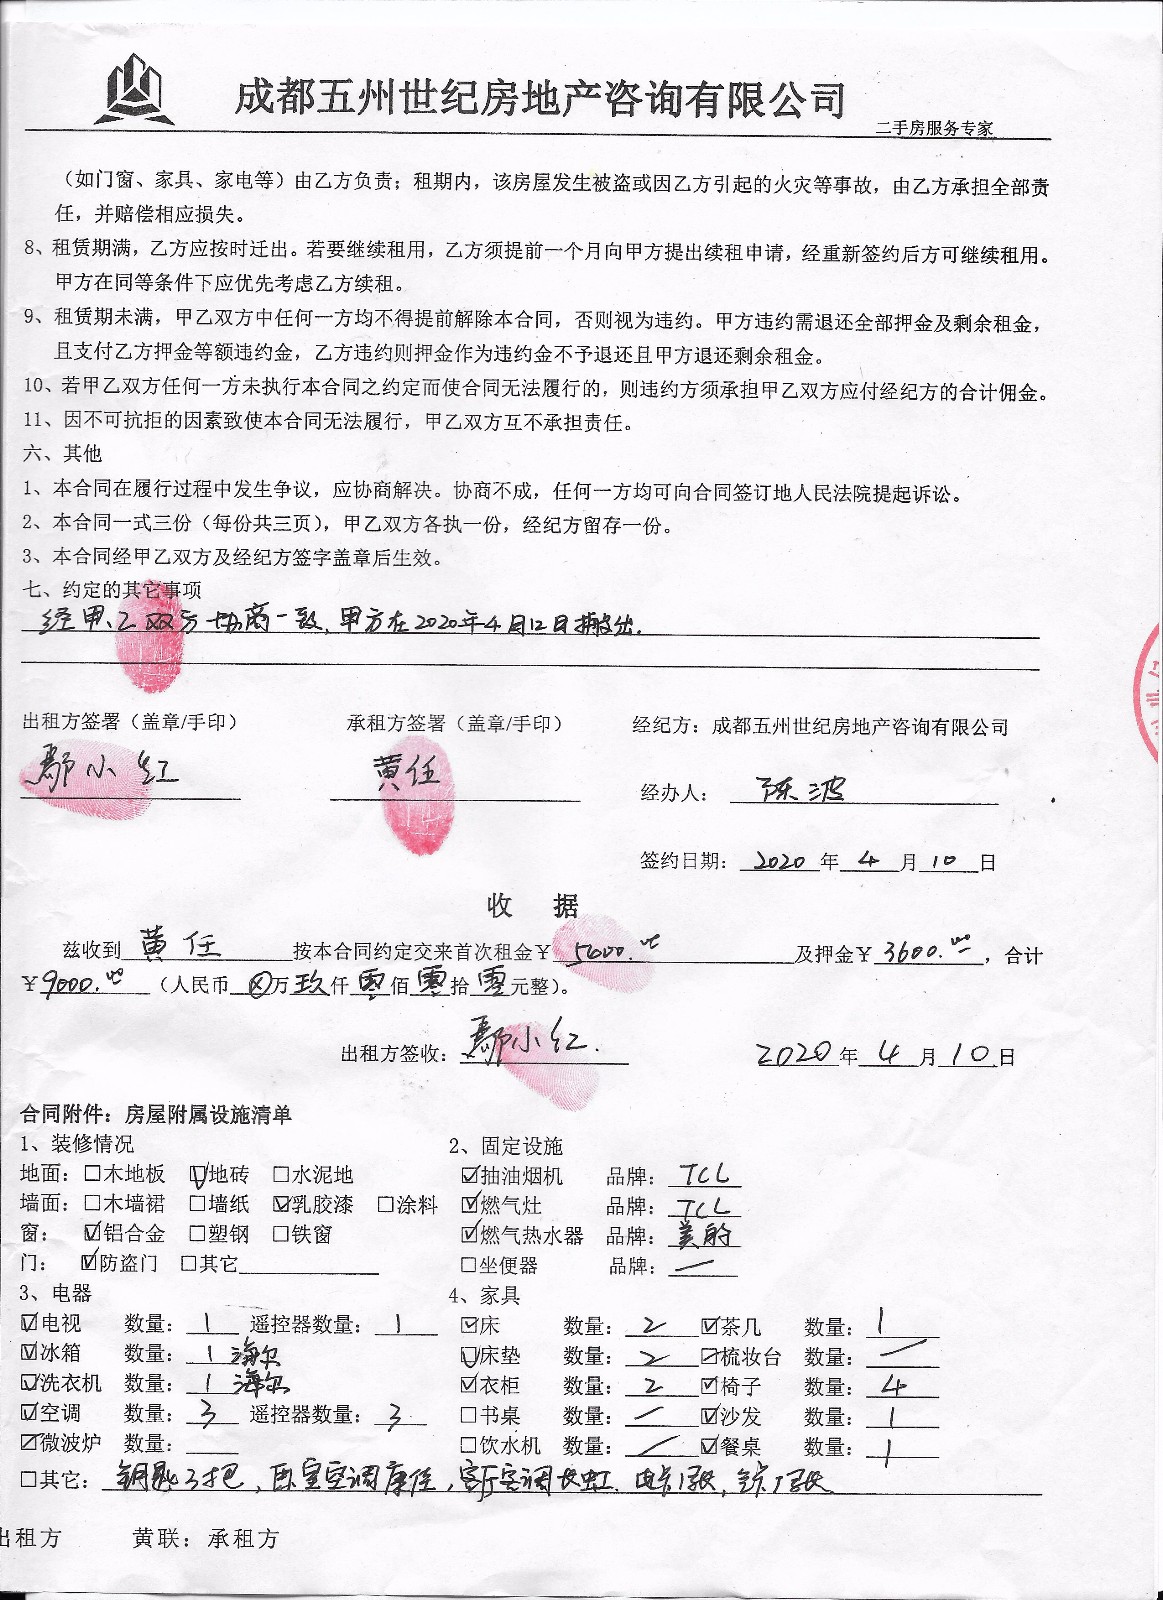 成都五州世纪房地产咨询有限公司
二手房服务专家
（如门窗、家具、家电等）由乙方负责；租期内，该房屋发生被盗或因乙方引起的火灾等事故，由乙方承担全部责
任，并赔偿相应损失。
8、租赁期满，乙方应按时迁出。若要继续租用，乙方须提前一个月向甲方提出续租申请，经重新签约后方可继续租用。
甲方在同等条件下应优先考虑乙方续租。
9、租赁期未满，甲乙双方中任何一方均不得提前解除本合同，否则视为违约。甲方违约需退还全部押金及剩余租金，
且支付乙方押金等额违约金，乙方违约则押金作为违约金不予退还且甲方退还剩余租金。
10、若甲乙双方任何一方未执行本合同之约定而使合同无法履行的，则违约方须承担甲乙双方应付经纪方的合计佣金。
11、因不可抗拒的因素致使本合同无法履行，甲乙双方互不承担责任。
六、其他
1、本合同在履行过程中发生争议，应协商解决。协商不成，任何一方均可向合同签订地人民法院提起诉讼。
2、本合同一式三份（每份共三页），甲乙双方各执一份，经纪方留存一份。
3、本合同经甲乙双方及经纪方签字盖章后生效。
七、约定的其它事项
经甲、乙双方协商一致，甲方在2020年4月12日搬出.
出租方签署（盖章/手印） 承租方签署（盖章/手印） 经纪方：成都五州世纪房地产咨询有限公司
鄢小红 黄任
经办人：陈波
签约日期：2020年4月10日
收 据
兹收到黄任 按本合同约定交来首次租金￥5400.00 及押金￥3600.00，合计
￥9000.00（人民币⊗万玖仟零佰零拾零元整）。
出租方签收：鄢小红. 2020年4月10日
合同附件：房屋附属设施清单
1、装修情况 2、固定设施
地面：□木地板 ☑地砖 □水泥地 ☑抽油烟机 品牌：TCL
墙面：□木墙裙 □墙纸 ☑乳胶漆 □涂料 ☑燃气灶 品牌：TCL
窗： ☑铝合金 □塑钢 □铁窗 ☑燃气热水器 品牌：美的
门： ☑防盗门 □其它 □坐便器 品牌：/
3、电器 4、家具
☑电视 数量：1 遥控器数量：1 ☑床 数量：2 ☑茶几 数量：1
☑冰箱 数量：1 海尔 ☑床垫 数量：2 ☑梳妆台 数量：/
☑洗衣机 数量：1 海尔 ☑衣柜 数量：2 ☑椅子 数量：4
☑空调 数量：3 遥控器数量：3 □书桌 数量：/ ☑沙发 数量：1
☑微波炉 数量： □饮水机 数量：/ ☑餐桌 数量：1
□其它：钥匙3把，卧室空调康佳，客厅空调长虹.电卡1张，气卡1张
出租方 黄联：承租方